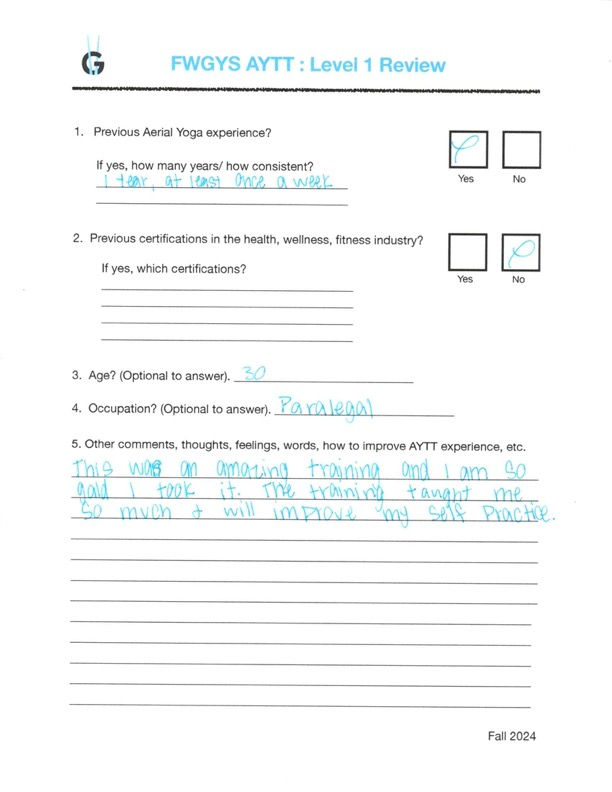 G
FWGYS AYTT : Level 1 Review
1. Previous Aerial Yoga experience?
If yes, how many years/ how consistent?
1 tear, at least once a week
Yes
No
2. Previous certifications in the health, wellness, fitness industry?
If yes, which certifications?
Yes
No
3. Age? (Optional to answer). 30
4. Occupation? (Optional to answer). Paralegal
5. Other comments, thoughts, feelings, words, how to improve AYTT experience, etc.
This was an amazing training and I am so
gald I took it. The training taught me
so much & will improve my self practice.
Fall 2024